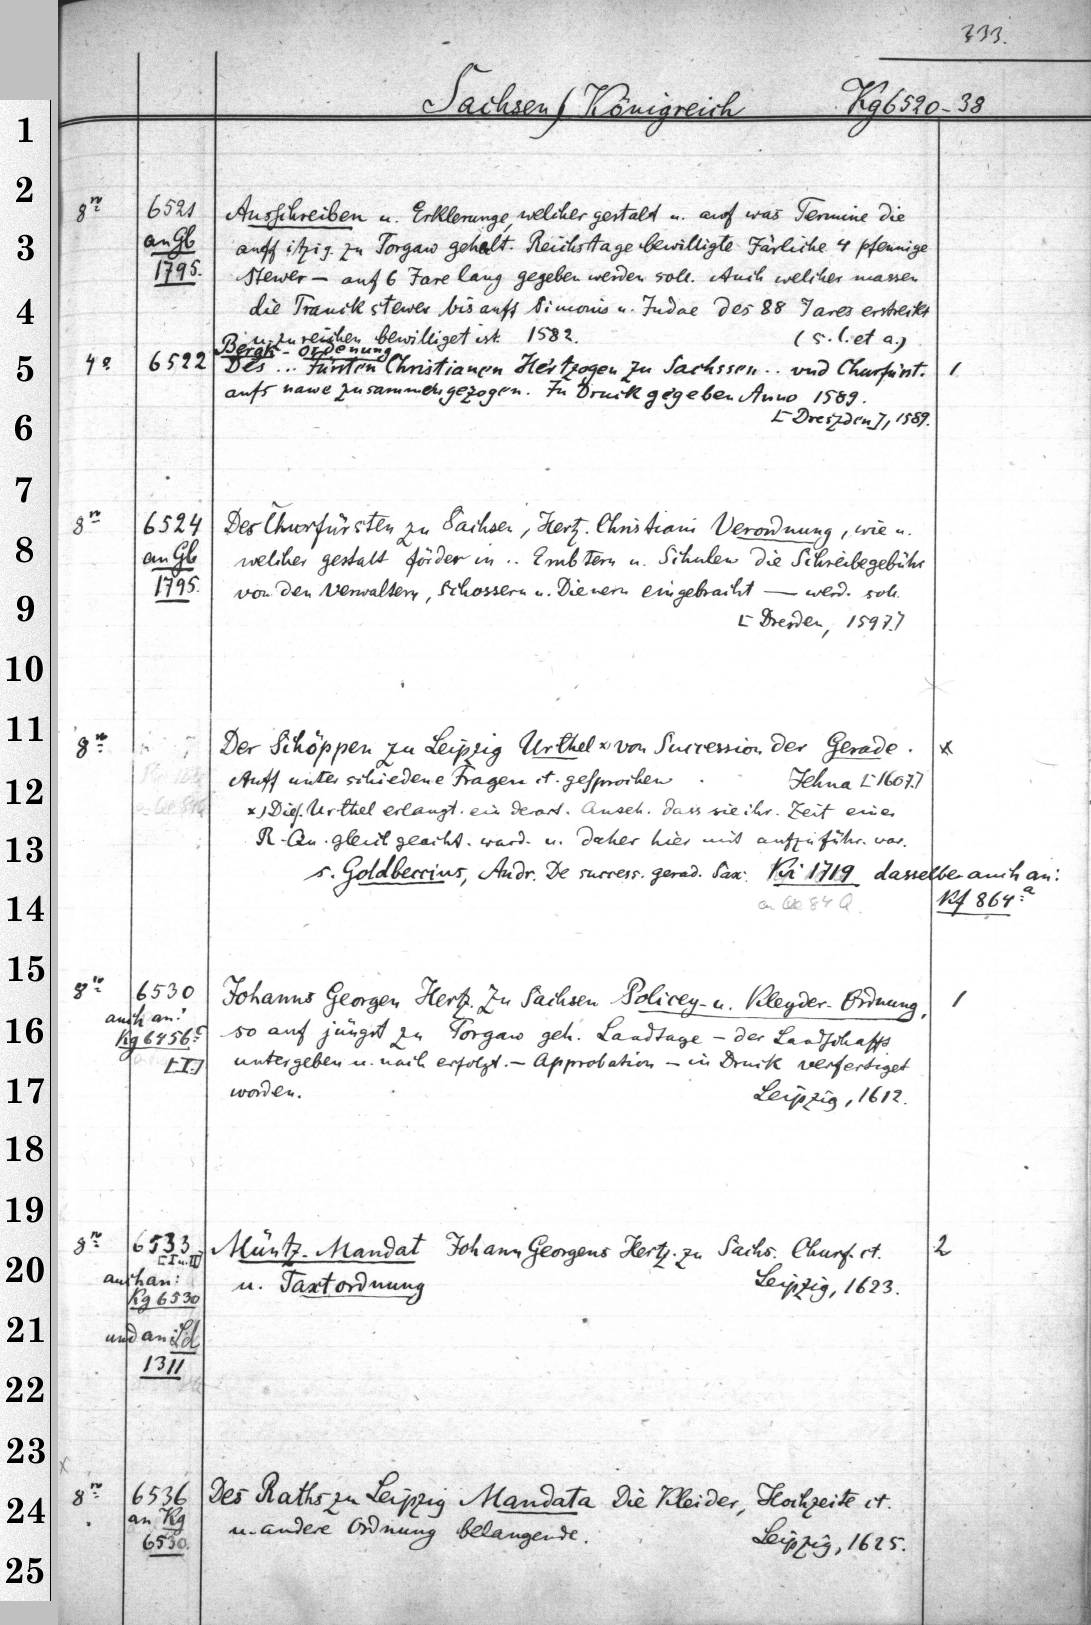 333.
Sachsen / Königreich Kg6520-38
1
2
8º 6521 Ausschreiben u. Erklerunge, welcher gestalt u. auf was Termine die
3
an Gb auff itzig. zu Torgaw gehalt. Reichstage bewilligte Järliche 4 pfennige
1795. Stewer — auf 6 Jare lang gegeben werden soll. Auch welcher massen
4
die Tranckstewer bis auff Simonis u. Judae des 88 Jares erstreckt
u. zu reichen bewilliget ist. 1582. (s. l. et a.)
Bergk-Ordenung
5
4º 6522 Des ... Fürsten Christianen Hertzogen zu Sachssen .. vnd Churfürst. 1
aufs nawe zusammengezogen. In Druck gegeben Anno 1589.
6
[Dreszden], 1589.
7
8º 6524 Des Churfürsten zu Sachsen, Hertz. Christiani Verordnung, wie u.
8
an Gb welcher gestalt förder in .. Embtern u. Schulen die Schreibegebühr
1795. von den Verwaltern, Schossern u. Dienern eingebracht — werd. soll.
9
[Dresden, 1597.]
10
11
8º Der Schöppen zu Leipzig Urthel x) von Succession der Gerade. x
12
Auff unterschiedene Fragen et. gesprochen Jehna [1607.]
x) Dies. Urthel erlangt. ein derart. Anseh. dass sie ihr. Zeit einer
13
R-Qu. gleich geacht. ward. u. daher hier mit aufzuführ. war.
s. Goldbeccius, Andr. De success. gerad. Sax: Kri 1719 dasselbe auch an:
14
Kf 864a
15
8º 6530 Johanns Georgen Hertz. zu Sachsen Policey- u. Kleyder-Ordnung, 1
auch an:
16
Kg 6456c so auf jüngst zu Torgaw geh. Landtage — der Landschafft
[I.] untergeben u. nach erfolgt. — Approbation — in Druck verfertiget
17
worden. Leipzig, 1612.
18
19
8º 6533 Müntz-Mandat Johann Georgens Hertz. zu Sachs. Churf. et. 2
[I u. II]
20
auch an: u. Taxtordnung Leipzig, 1623.
Kg 6530
21
und an: Ld
1311
22
23
x
8º 6536 Des Raths zu Leipzig Mandata die Kleider, Hochzeite et.
24
an Kg u. andere Ordnung belangende. Leipzig, 1625.
6530.
25